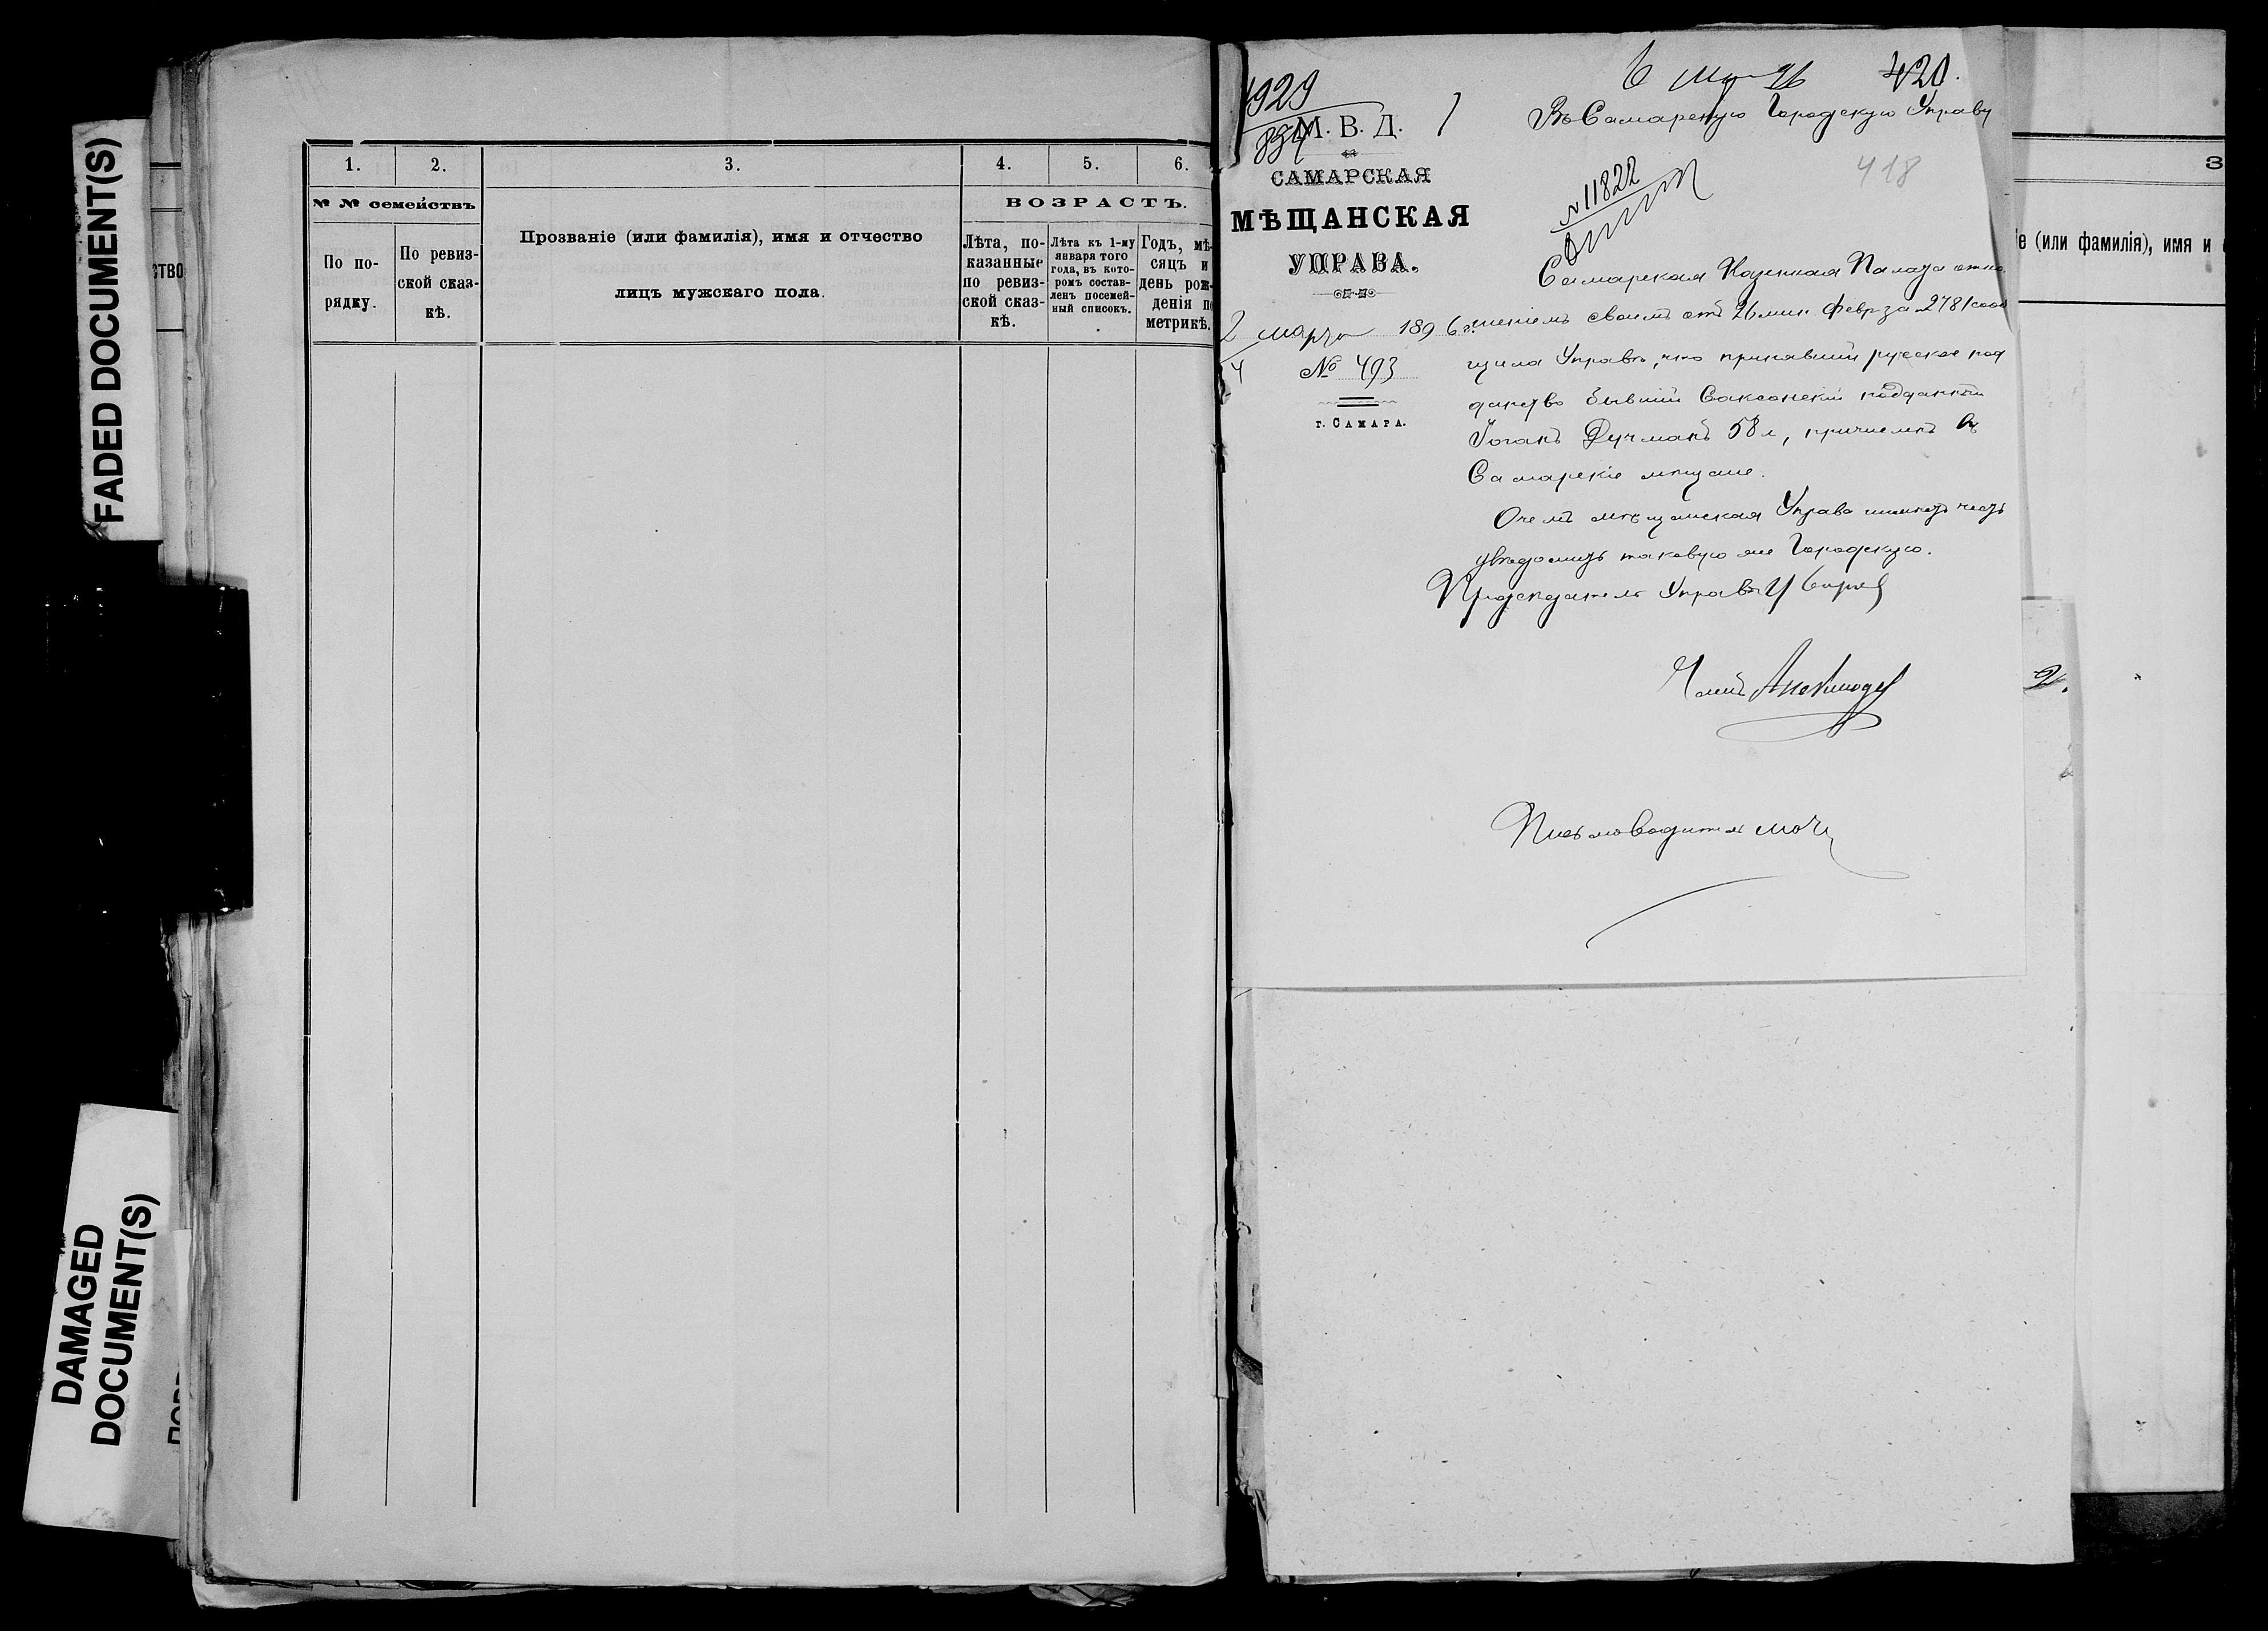 FADED DOCUMENT(S)
DAMAGED
DOCUMENT(S)
СТВО
1. 2. 3. 4. 5. 6.
№ № семействъ
По по-
рядку.
По ревиз-
ской сказ-
кѣ.
Прозваніе (или фамилія), имя и отчество
лицъ мужскаго пола.
ВОЗРАСТЪ.
Лѣта, по-
казанные
по ревиз-
ской сказ-
кѣ.
Лѣта къ 1-му
января того
года, въ кото-
ромъ состав-
ленъ посемей-
ный списокъ.
Годъ, мѣ-
сяцъ и
день рож-
денія по
метрикѣ.
1929
834
М. В. Д.
САМАРСКАЯ
МѢЩАНСКАЯ
УПРАВА.
2 марта 1896 г.
4
№ 493
г. САМАРА.
6 96 420.
Въ Самарскую Городскую Управу
418
№ 11822
Самарская Казенная Палата отно
шеніемъ своимъ отъ 26 мин. Февр за 2781 сооб
щила Управѣ, что принявшій русское под
данство бывшій Саксонскій подданный
Іоганъ Дучманъ 58 л, причисленъ въ
Самарскіе мѣщане.
О чемъ мѣщанская Управа имѣетъ честь
увѣдомить таковую же Городскую.
Предсѣдатель Управы
Членъ
Письмоводитель
3
іе (или фамилія), имя и
2.